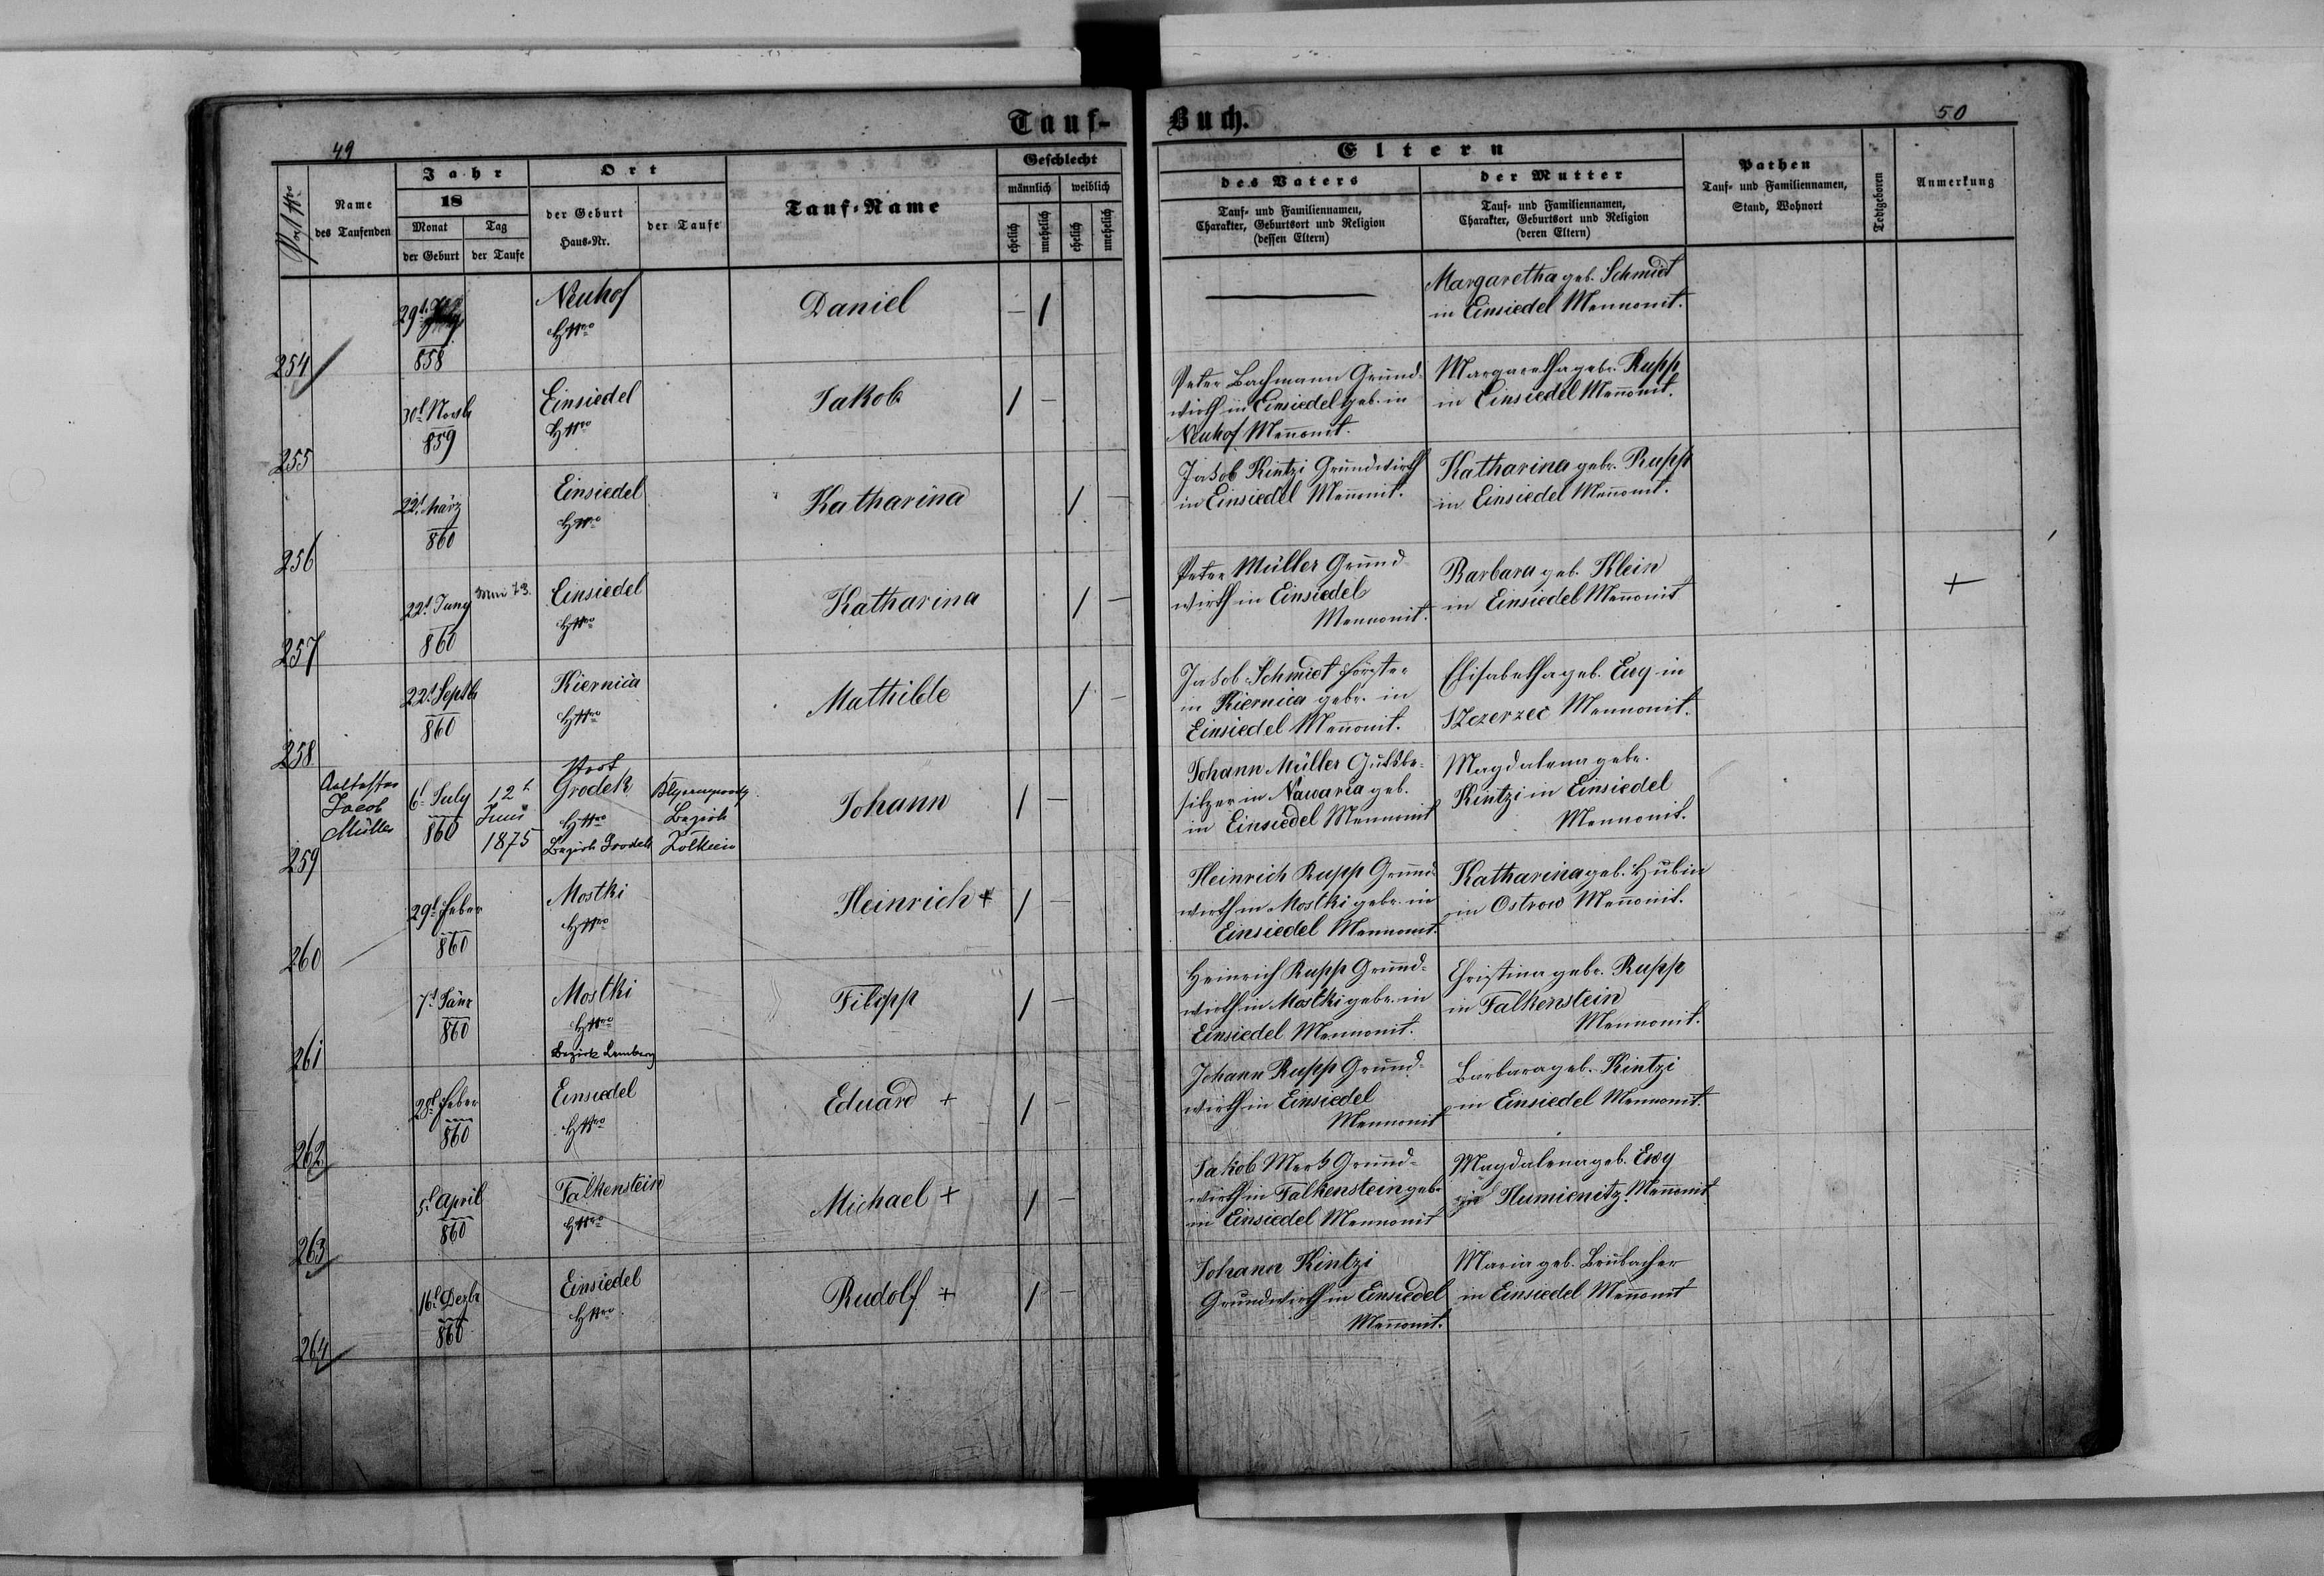 Tauf-
Buch.
49
50
Post Nro
Name
des Taufenden
Jahr
18
Monat
Tag
der Geburt
der Taufe
Ort
der Geburt
Haus-Nr.
der Taufe
Tauf-Name
Geschlecht
männlich
weiblich
ehelich
unehelich
ehelich
unehelich
Eltern
des Vaters
Tauf- und Familiennamen,
Charakter, Geburtsort und Religion
(dessen Eltern)
der Mutter
Tauf- und Familiennamen,
Charakter, Geburtsort und Religion
(deren Eltern)
Pathen
Tauf- und Familiennamen,
Stand, Wohnort
Todtgeboren
Anmerkung
254
29t
858
Neuhof
HNro
Daniel
Margaretha geb. Schmidt
in Einsiedel Mennonit.
255
30t Novb
859
Einsiedel
HNro
Jakob
Peter Bachmann Grund-
wirth in Einsiedel geb. in
Neuhof Menonit.
Margaretha gebr. Rupp
in Einsiedel Menonit.
256
22t März
860
Einsiedel
HNro
Katharina
Jakob Kintzi Grundwirth
in Einsiedel Menonit.
Katharina gebr. Rupp
in Einsiedel Menonit.
257
22t Juny
860
73.
Einsiedel
HNro
Katharina
Peter Müller Grund-
wirth in Einsiedel
Mennonit.
Barbara geb. Klein
in Einsiedel Menonit
+
258
22t Septb
860
Kiernica
HNro
Mathilde
Jakob Schmidt Förster
in Kiernica gebr. in
Einsiedel Menonit.
Elisabetha geb. Ewy in
Szczerzec Mennonit.
259
Aeltester
Jacob
Müller
6t July
860
12t
Juni
1875
Post
Grodek
HNro
Bezirk Grodek
Bezirk
Zolkiew
Johann
Johann Müller Gutsbe-
sitzer in Nawaria geb.
in Einsiedel Mennonit
Magdalena gebr.
Kintzi in Einsiedel
Mennonit.
260
29t Feber
860
Mostki
HNro
Heinrich +
Heinrich Rupp Grund-
wirth in Mostki gebr. in
Einsiedel Mennonit.
Katharina geb. Hubin
in Ostrow Menonit.
261
7t Jänr
860
Mostki
HNro
Bezirk Lemberg
Filipp
Heinrich Rupp Grund-
wirth in Mostki gebr. in
Einsiedel Mennonit.
Christina gebr. Rupp
in Falkenstein
Mennonit.
262
28t Feber
860
Einsiedel
HNro
Eduard +
Johann Rupp Grund-
wirth in Einsiedel
Mennonit
Barbara geb. Kintzi
in Einsiedel Mennonit.
263
5t April
860
Falkenstein
HNro
Michael +
Jakob Merk Grund-
wirth in Falkenstein gebr
in Einsiedel Mennonit
Magdalena geb. Ewy
in Humienitz Menonit
264
16t Dezbr
860
Einsiedel
HNro
Rudolf +
Johann Kintzi
Grundwirth in Einsiedel
Menonit.
Maria geb. Brubacher
in Einsiedel Menonit